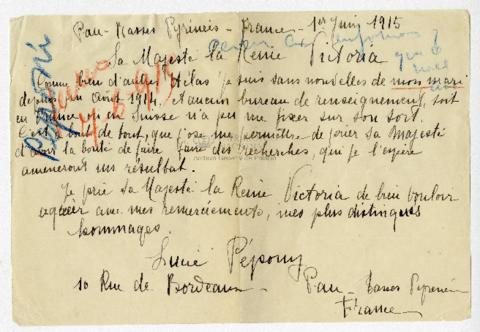 Pau - Basses Pyrénées - France - 1er Juin 1915
Sa Majesté la Reine Victoria
Comme bien d'autres hélas je suis sans nouvelles de mon mari
depuis Août 1914, et aucun bureau de renseignement, soit
en France ou en Suisse n'a pu me fixer sur son sort.
C'est à bout de tout, que j'ose me permettre de prier Sa Majesté
d'avoir la bonté de faire faire des recherches, qui je l'espère
amèneront un résultat.
Je prie Sa Majesté la Reine Victoria de bien vouloir
agréer avec mes remerciements, mes plus distingués
hommages.
Lucie Pépony
10 Rue de Bordeaux - Pau - Basses Pyrénées
France
Pépony